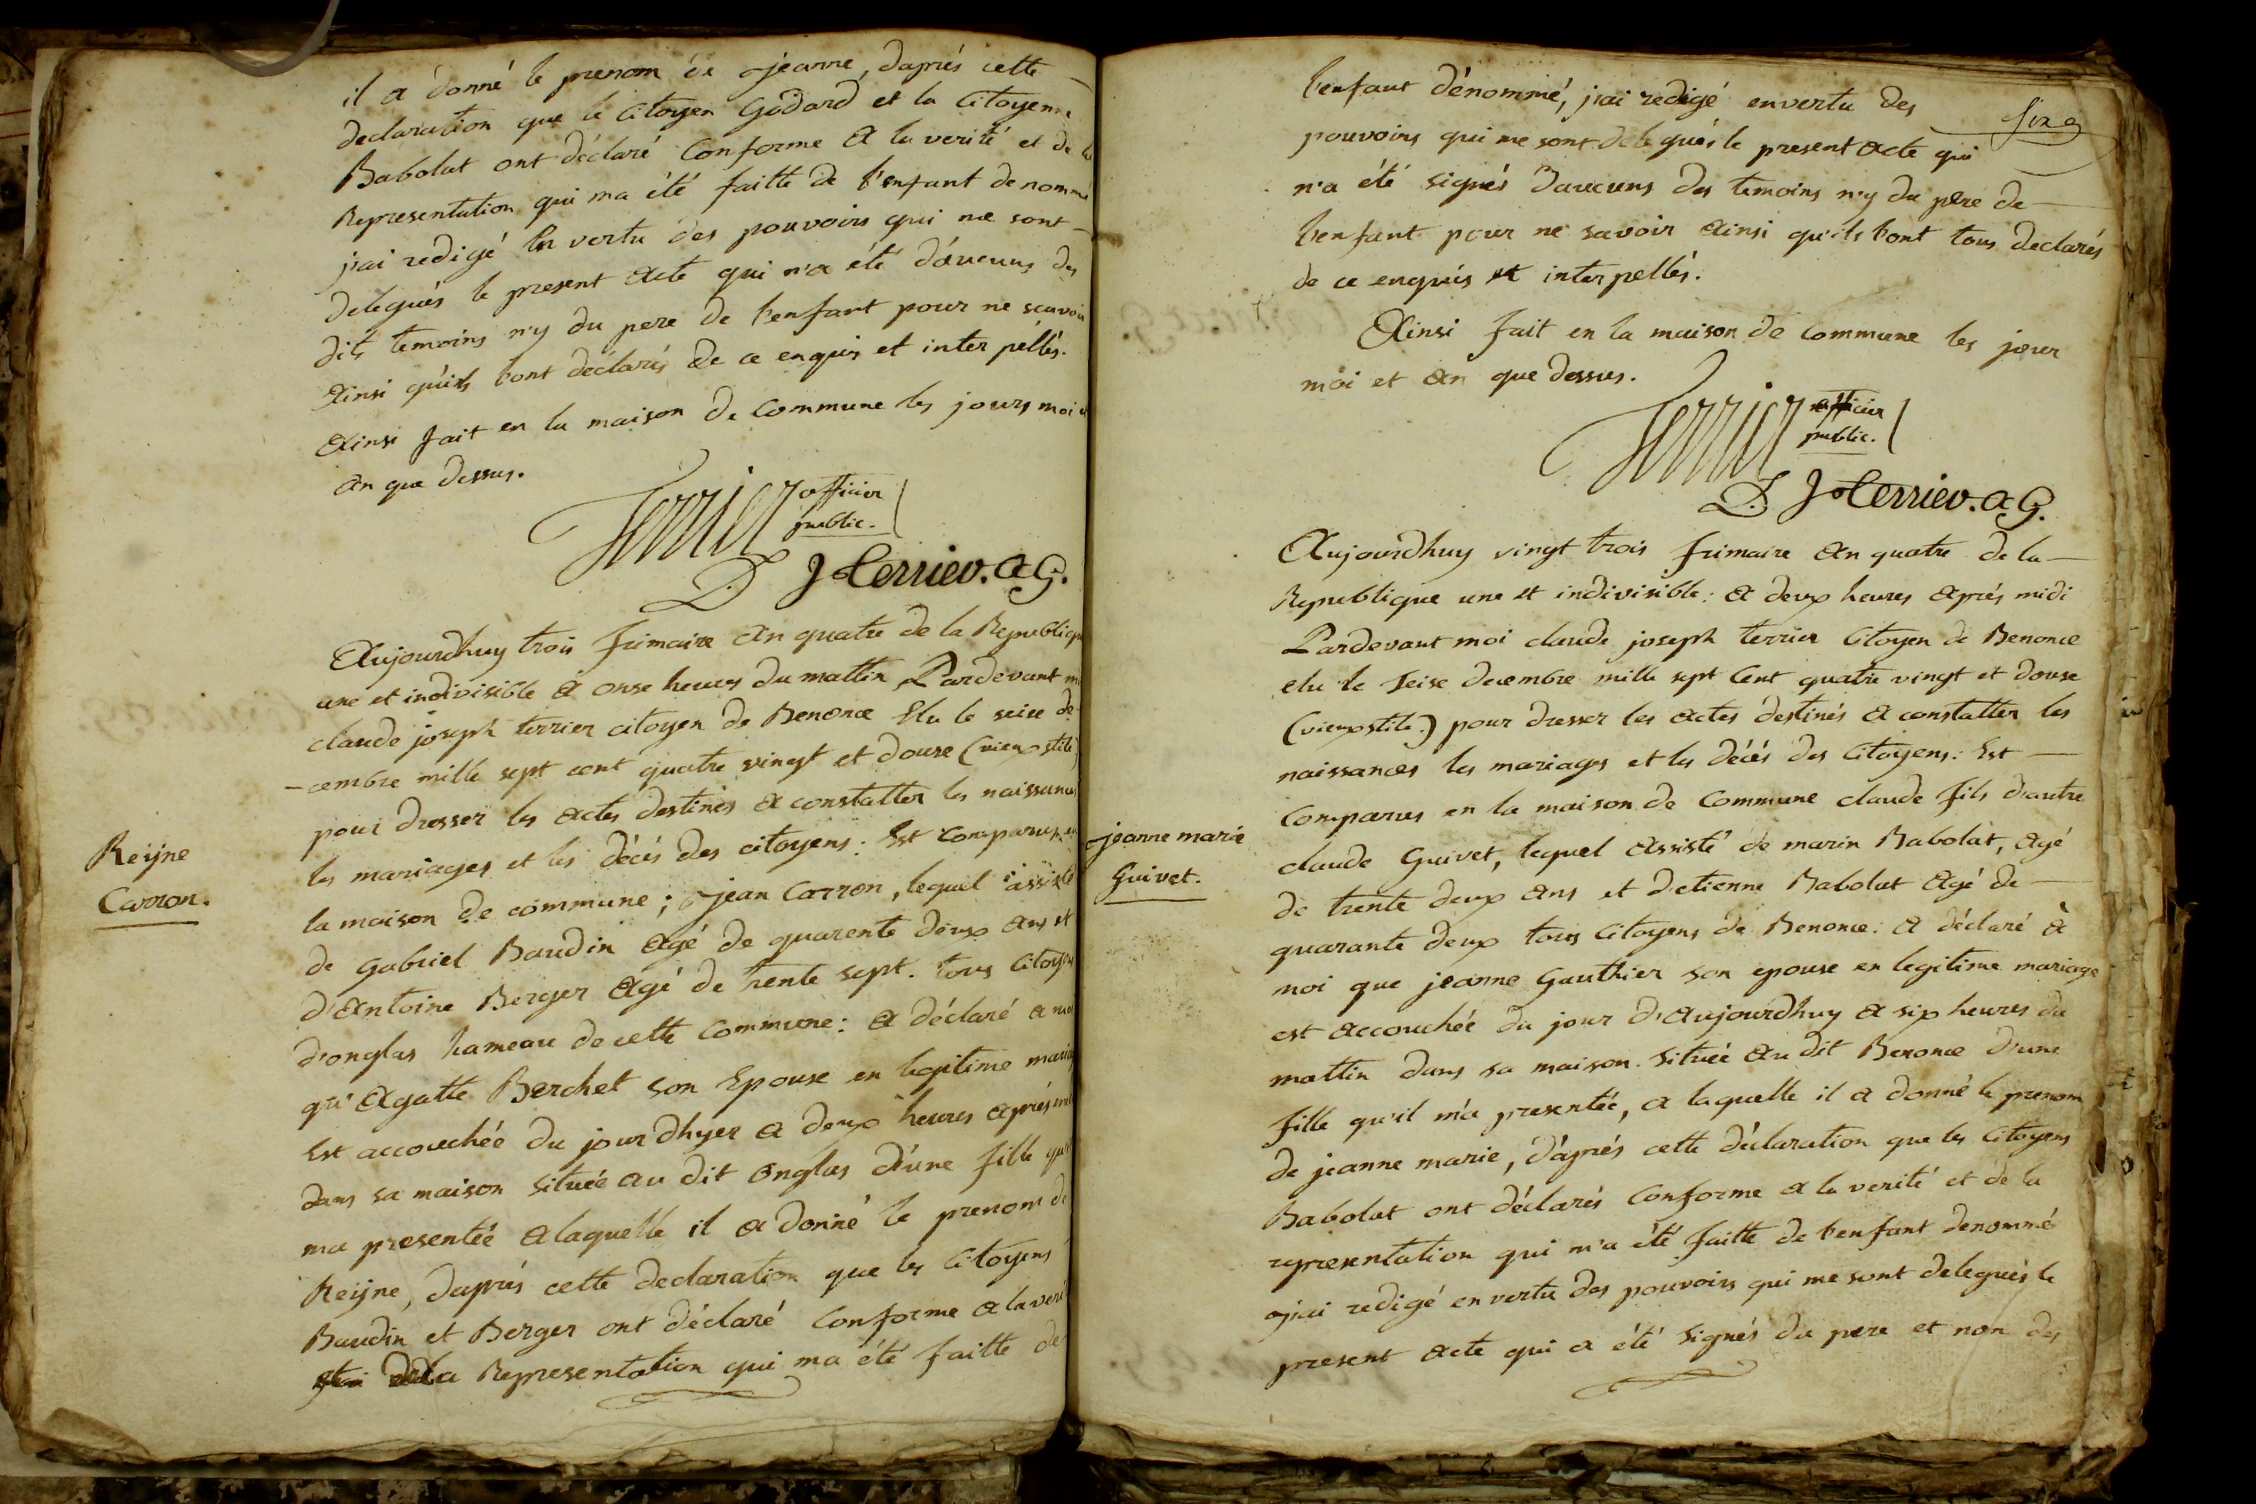 il a donné le prenom de jeanne, daprés cette
declaration que le Citoyen Godard et la Citoyenne
Babolat ont déclaré Conforme a la verité et de la
Representation qui ma été faitte de l'enfant denommé
j'ai redigé En vertu des pouvoirs qui me sont
delegués le present acte qui n'a été d'aucuns des
dits temoins n'y du pere de l'enfant pour ne scavoir
Ainsi qu'ils l'ont déclarés de ce enquis et interpéllés.
Ainsi fait en la maison de Commune les jours moi et
an que dessus.
Terrier officier
public.
D J terriev. a G.
Aujourdhuy trois frimaire an quatre de la Republique
une et indivisible a onse heures du mattin Pardevant moi
claude joseph terrier citoyen de Benonce Elu le seise de
-cembre mille sept cent quatre vingt et douse (vieux stile)
pour dresser les actes destinés a constatter les naissances
les mariages et les décés des citoyens: Est comparus en
Reijne
Carron.
la maison de commune; jean Carron, lequel assisté
de gabriel Baudin agé de quarente deux ans et
d'Antoine Berger agé de trente sept. tous Citoyens
d'onglas hameau de cette Commune: a déclaré a moi
qu'Agatte Berchet son Epouse en legitime mariage
Est accouchée du jour dhyer a deux heures aprés midi
dans sa maison située au dit onglas d'une fille qu'il
ma presentée a laquelle il a donné le prenom de
Reijne, daprés cette declaration que les Citoyens
Baudin et Berger ont déclaré Conforme a la verité
de la Representation qui ma été faitte de
l'enfant dénommé, j'ai redigé envertu des
six
pouvoirs qui me sont delegués le present acte qui
n'a été signés d'aucuns des temoins n'y du pere de
l'enfant pour ne savoir ainsi qu'ils l'ont tous declarés
de ce enquis et interpellés.
Ainsi fait en la maison de Commune les jour
moi et an que dessus.
Terrier officier
public.
D. J terriev. a G.
Aujourdhuy vingt trois frimaire an quatre de la
Republique une et indivisible: a deux heures aprés midi
Pardevant moi claude joseph terrier Citoyen de Benonce
elu le seise decembre mille sept Cent quatre vingt et douse
(vieux stile.) pour dresser les actes destinés a constatter les
naissances les mariages et les décés des Citoyens: Est
Comparus en la maison de Commune claude fils d'autre
jeanne marie
Guivet.
claude Guivet, lequel assisté de marin Babolat, agé
de trente deux ans et d'etienne Babolat agé de
quarante deux tous Citoyens de Benonce: a déclaré à
moi que jeanne Gauthier son epouse en legitime mariage
est accouchée du jour d'aujourdhuy a six heures du
mattin dans sa maison située au dit Benonce d'une
fille qu'il m'a presentée, a laquelle il a donné le prenom
de jeanne marie, d'aprés cette déclaration que les Citoyens
Babolat ont déclarés Conforme a la verité et de la
representation qui m'a été faitte de l'enfant denommé
j'ai redigé en vertu des pouvoirs qui me sont delegués le
present acte qui a été signés du pere et non des